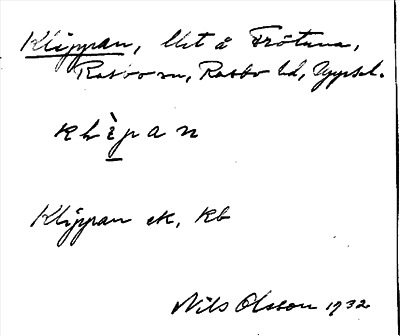 Klippan, lht å Frötuna,
Rasbo sn, Rasbo hd, Uppsl.
klìpan
Klippan ek, kb
Nils Olsson 1932